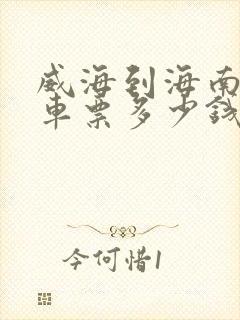 威海到海南
车票多少钱
今何惜1